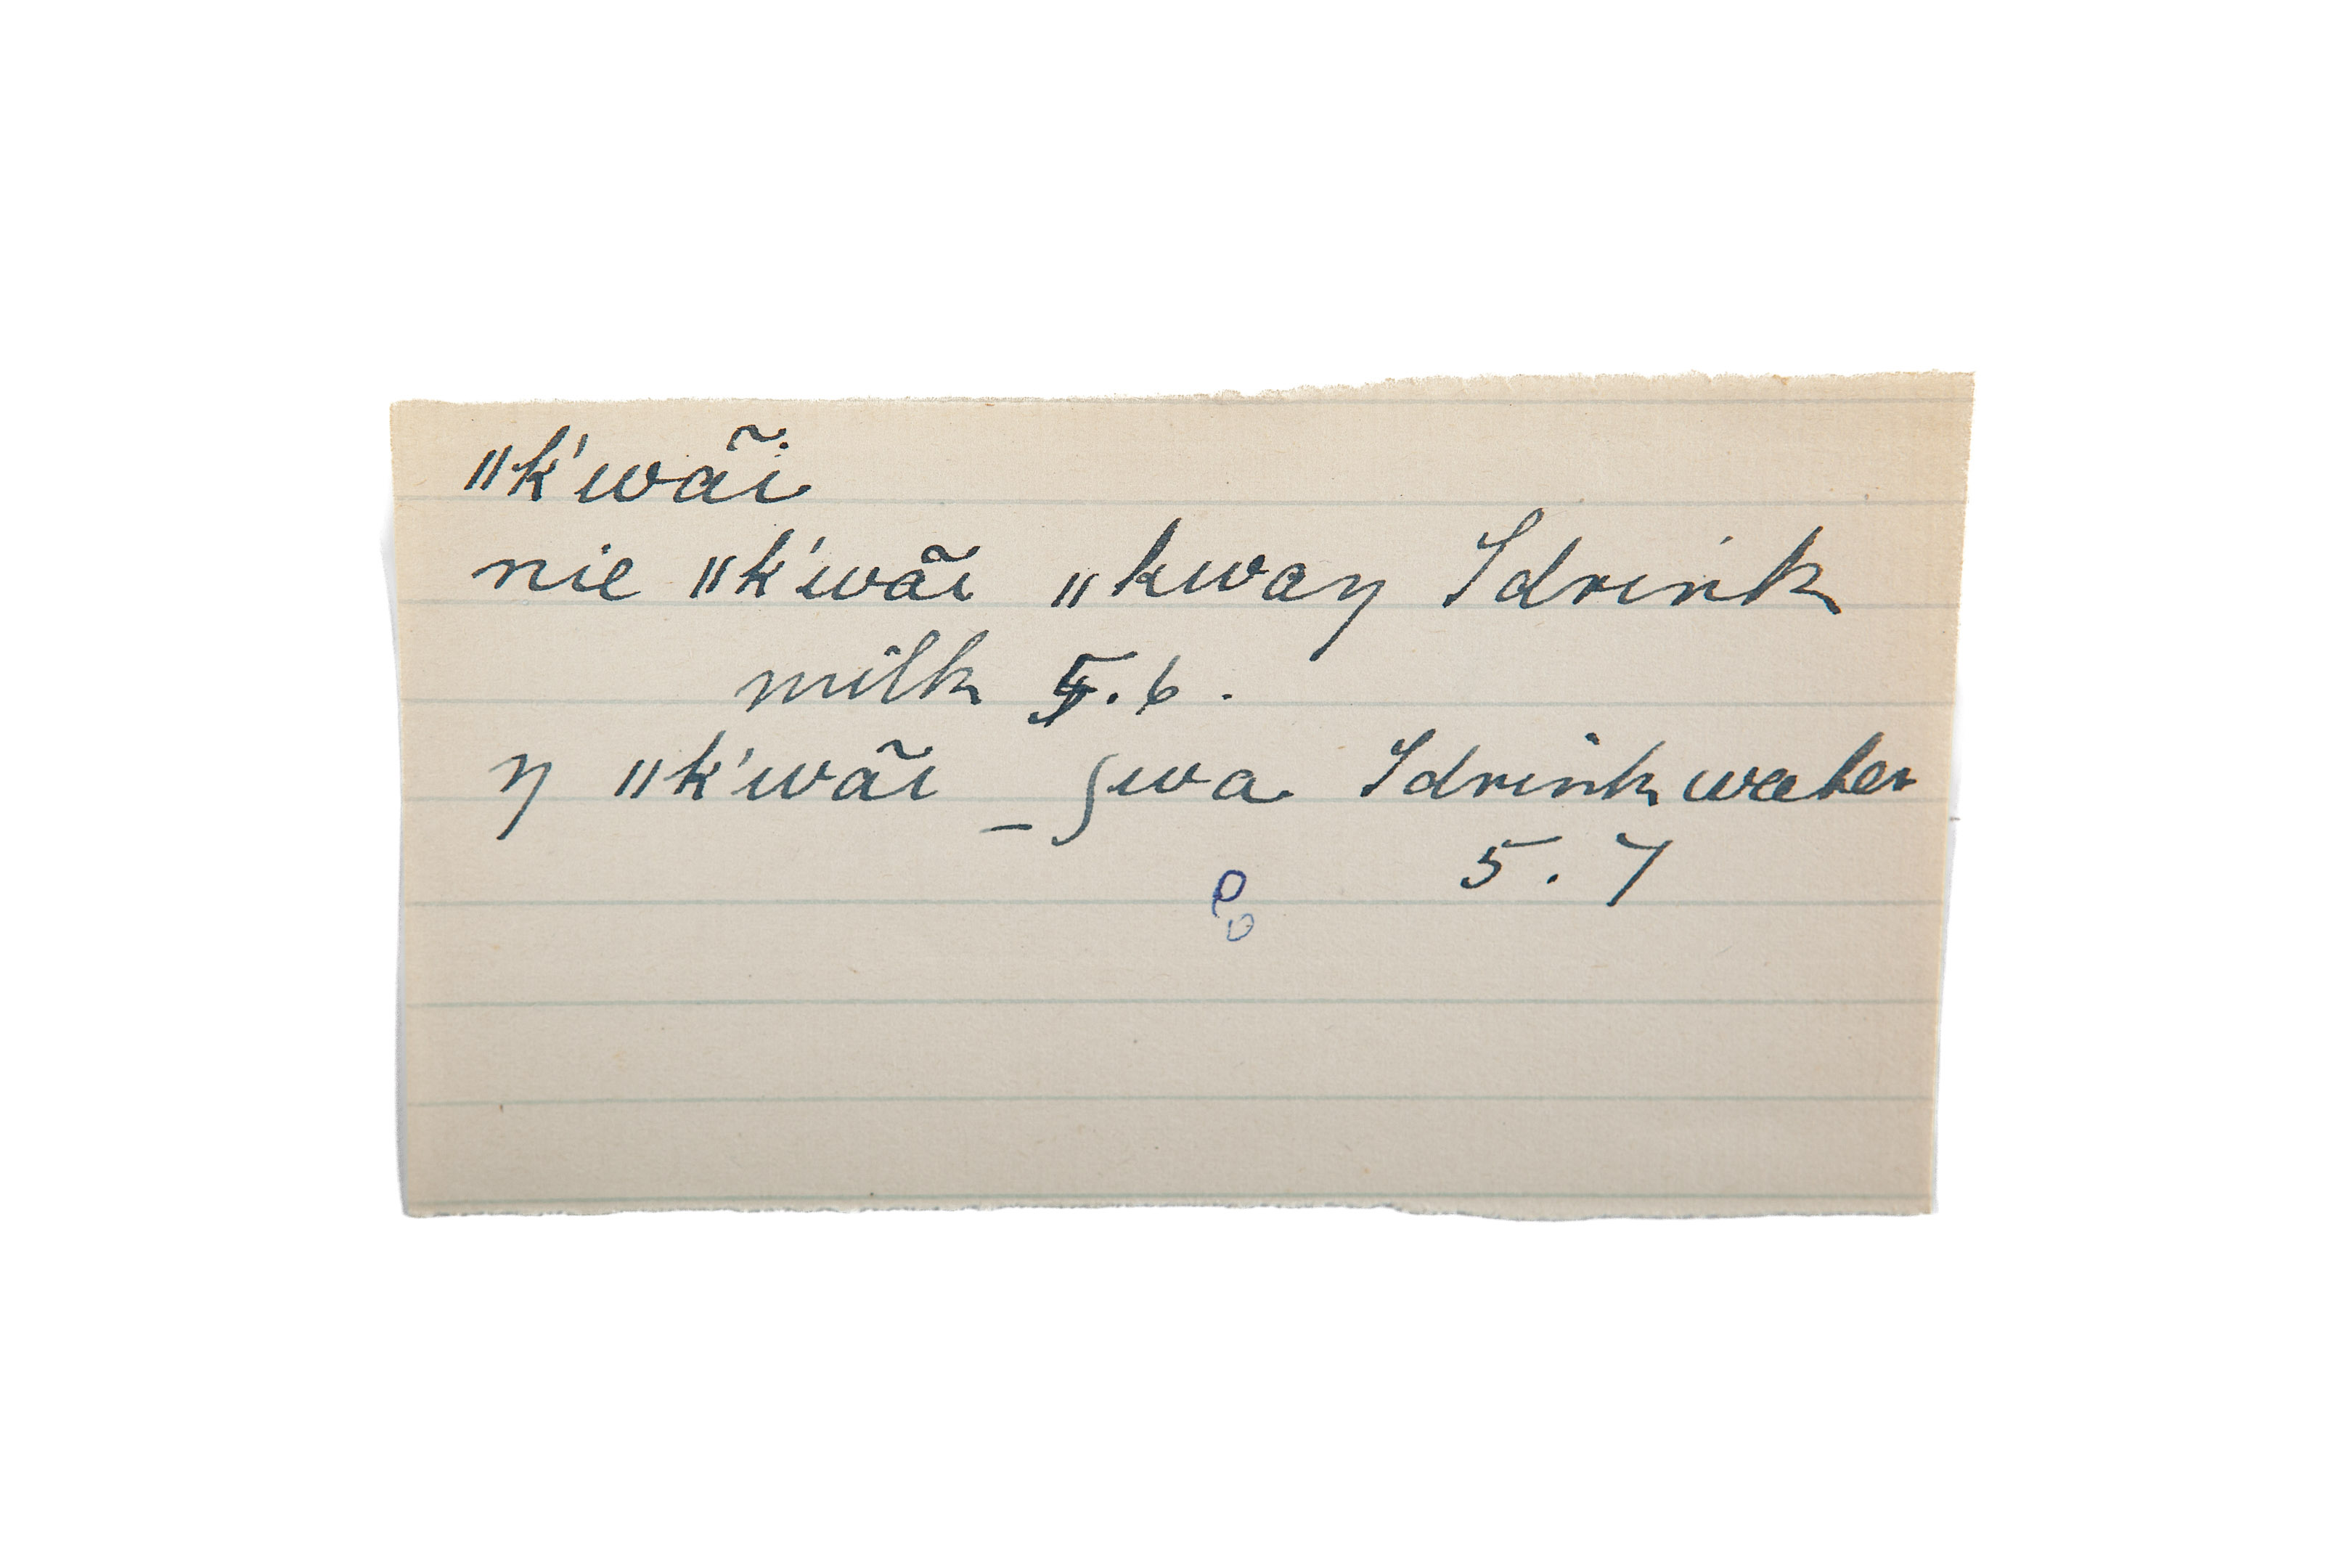 ǁk'wãi
nie ǁk'wãi ǁkwaŋ I drink
milk 5.6.
ŋ ǁk'wãi _ʃwa I drink water
5.7